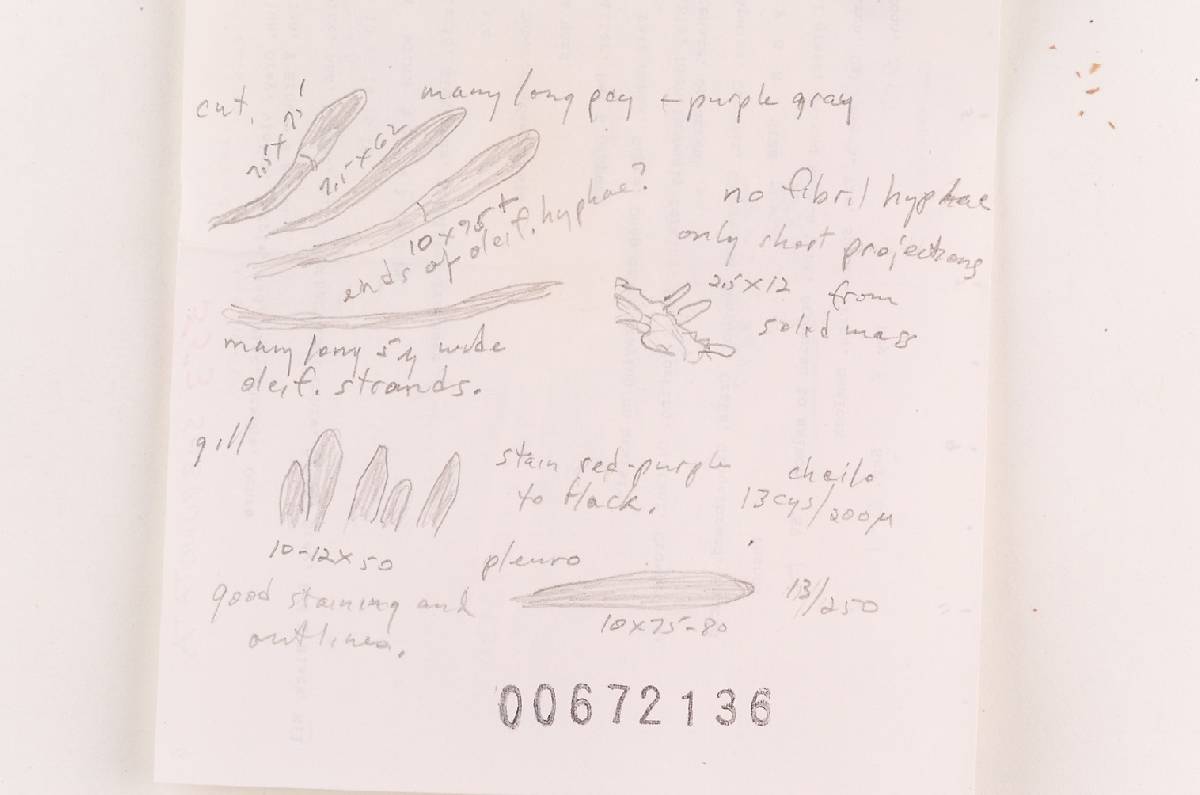 cut.
many long pcy – purple gray
7.5 x 62
10 x 95+
ends of oleif. hyphae?
no fibril hyphae
only short projections
2.5 x 12 from
solid mass
many long 5µ wide
oleif. strands.
gill
stain red-purple
to black.
cheilo
13 cys/200µ
10-12 x 50
pleuro
good staining and
outlines.
10 x 75-80
13/250
00672136